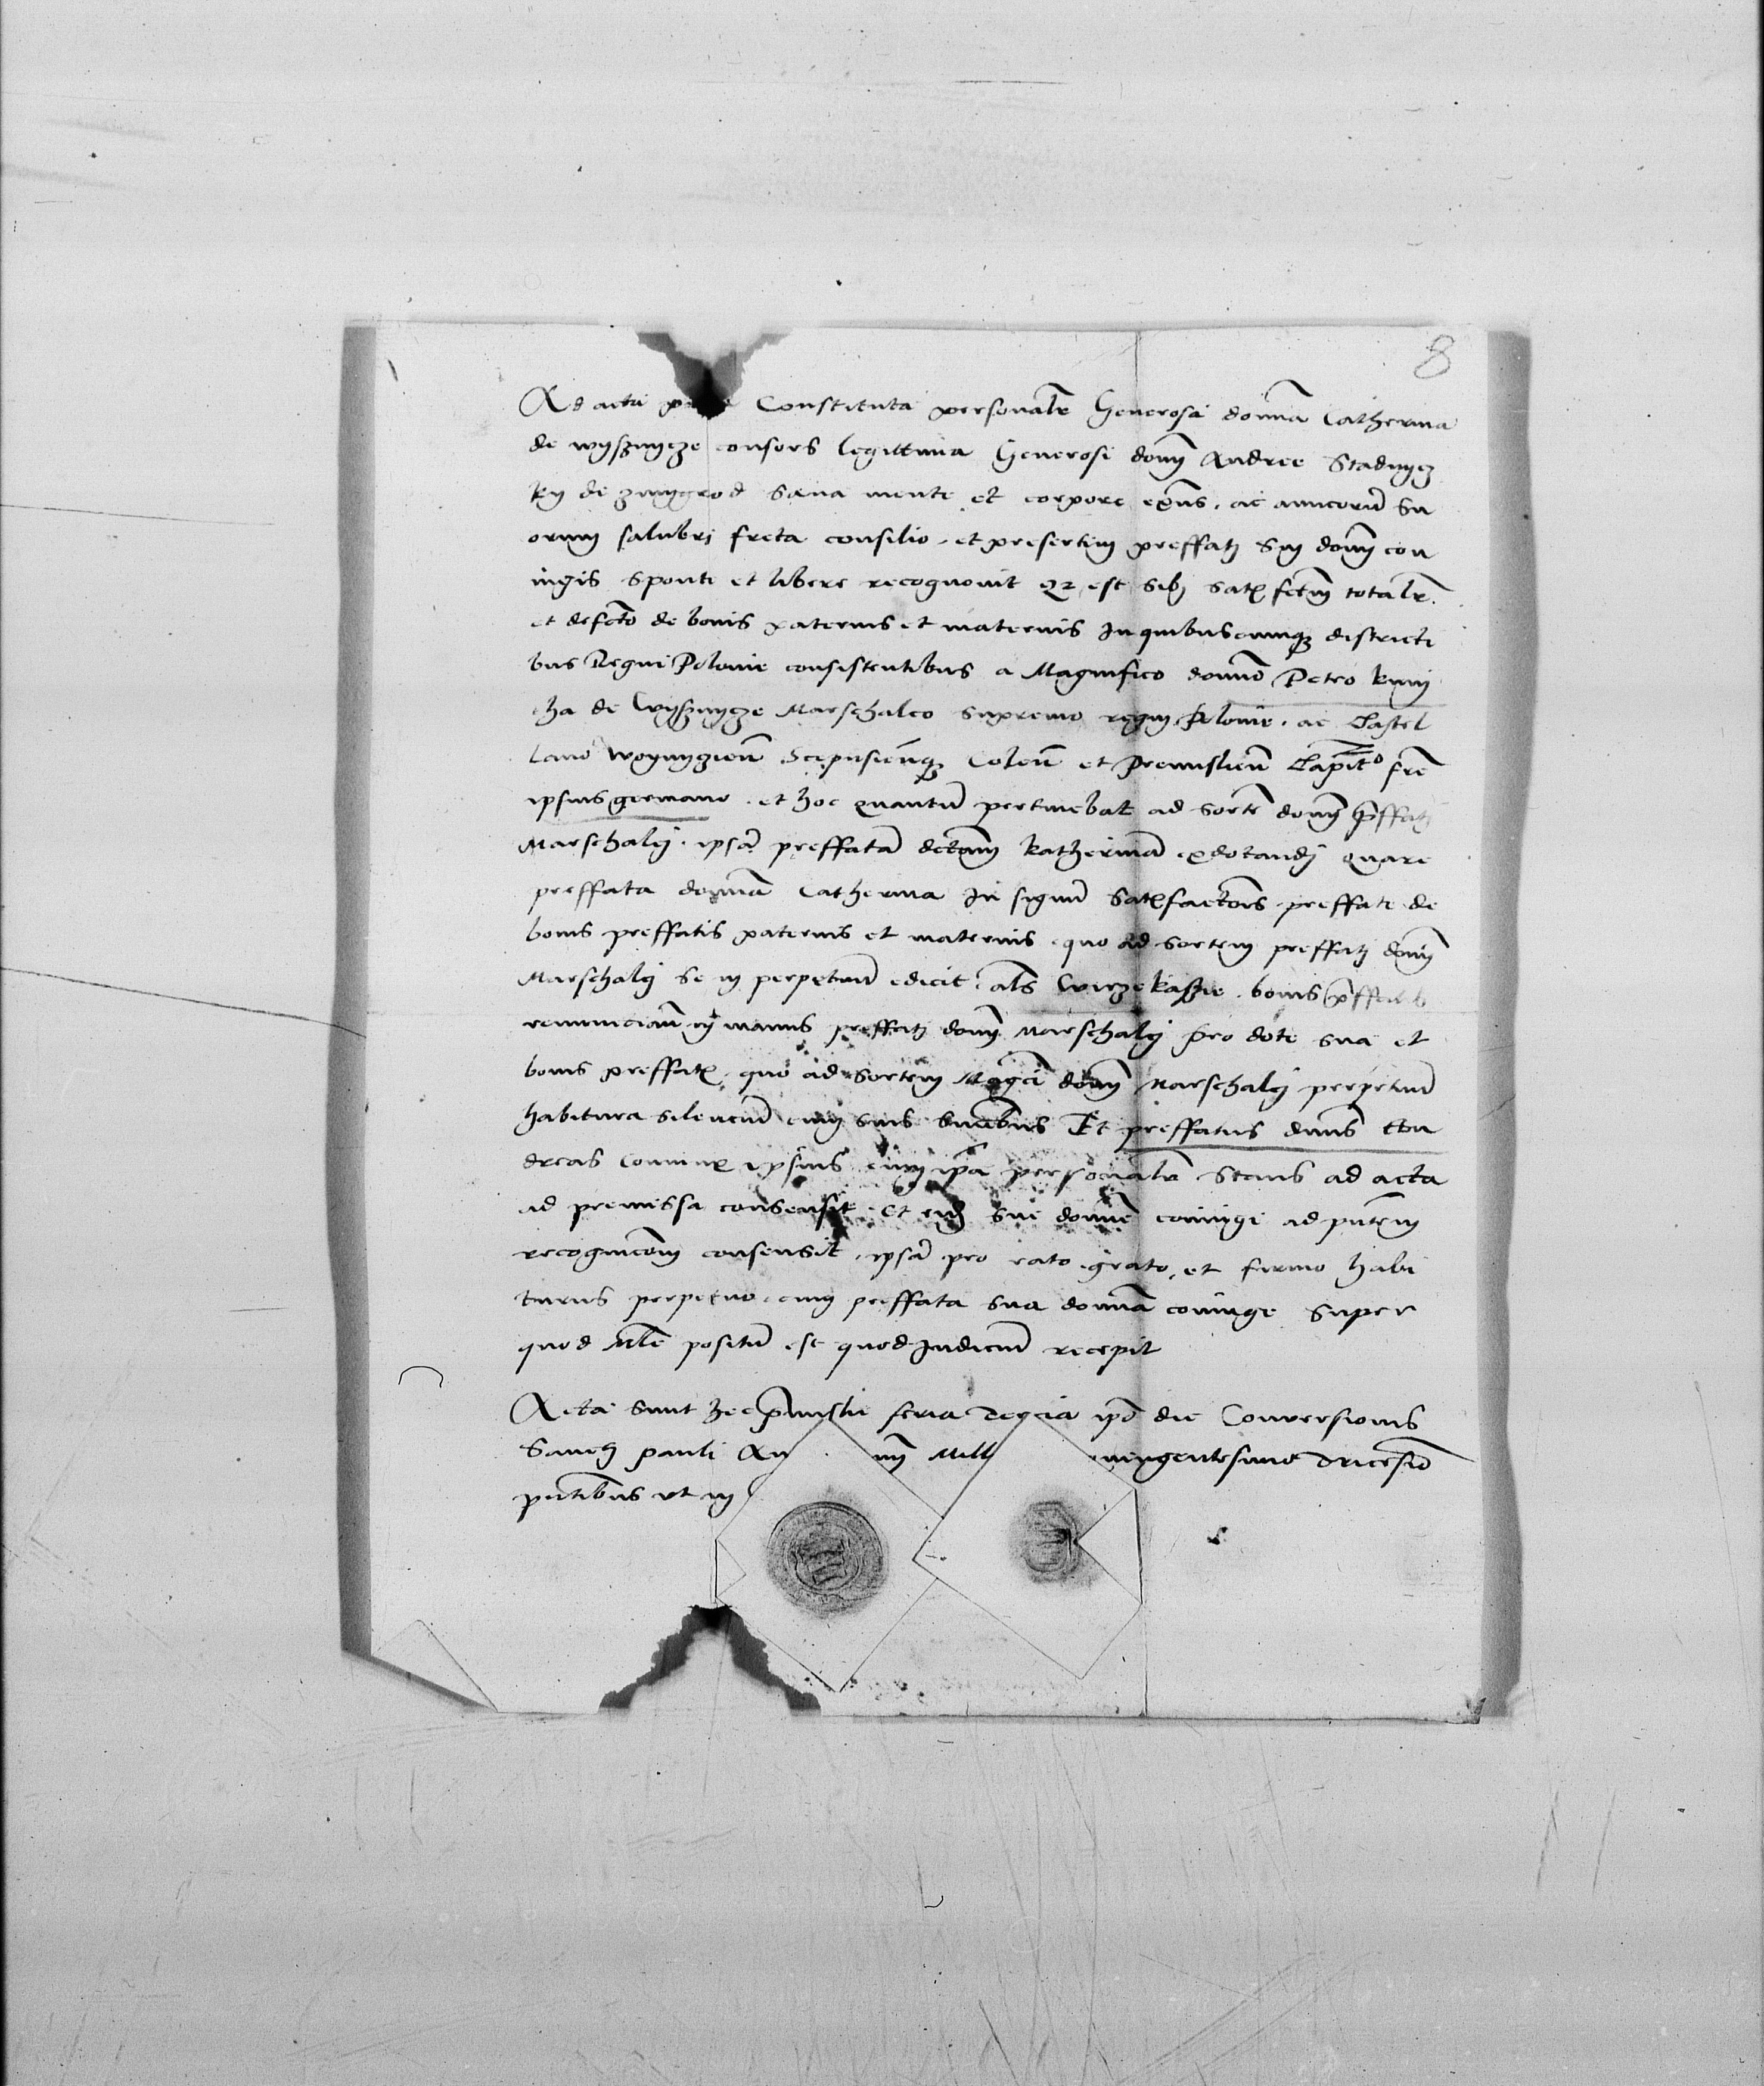 8
Ad acta Constituta personalr Generosa domina Catherina
de wyssnycze consors legittima Generosi domi Andree Stadnycz
ky de zmygrod sana mente et corpore exns . ac amicoru su
orum salubri freta consilio . et presertim preffati sui domi con
iugis sponte et libere recognouit est sibi satis fctm totalr .
et defcto de bonis paternis et maternis In quibuscumq districti
bus Regni Polonie consistentibus a Magnifico domino Petro kmi
tha de wyssnycze Marschalco supremo regni Polonie . ac Castel
lano woynyczien Scepusienq Colen et Premislien Capit fre
ipsius germano . et hoc quantu pertinebat ad sorte domi preffati
Marschalci . ipsa preffata dctam katherina exdotandi quare
preffata domina Catherina In signu satisfactois preffate de
bonis preffatis paternis et maternis quo ad sortem preffati domi
Marschalci se in perpetuu edicit . als wirzekasie . bonis
renuncian in manus preffati domi Marschalci pro dote sua et
bonis preffatis . quo ad sortem Magci domi Marschalci perpetuu
habitura silenciu cum suis Et preffatus dnus An
dreas coniunx ipsius cum ipa personalr stans ad acta
ad premissa consensit . et sue domine coniugi ad pntem
recognicom consensit . ipsa pro rato . grato . et firmo habi
turus perpetuo . cum preffata sua domina coniuge super
quod mle positu est quod Judiciu recepit
Acta sunt hec premislie feria Tercia ipo die Conuersionis
Sancti pauli An ni Mill ningentesimo Tricesio
pntibus ut in